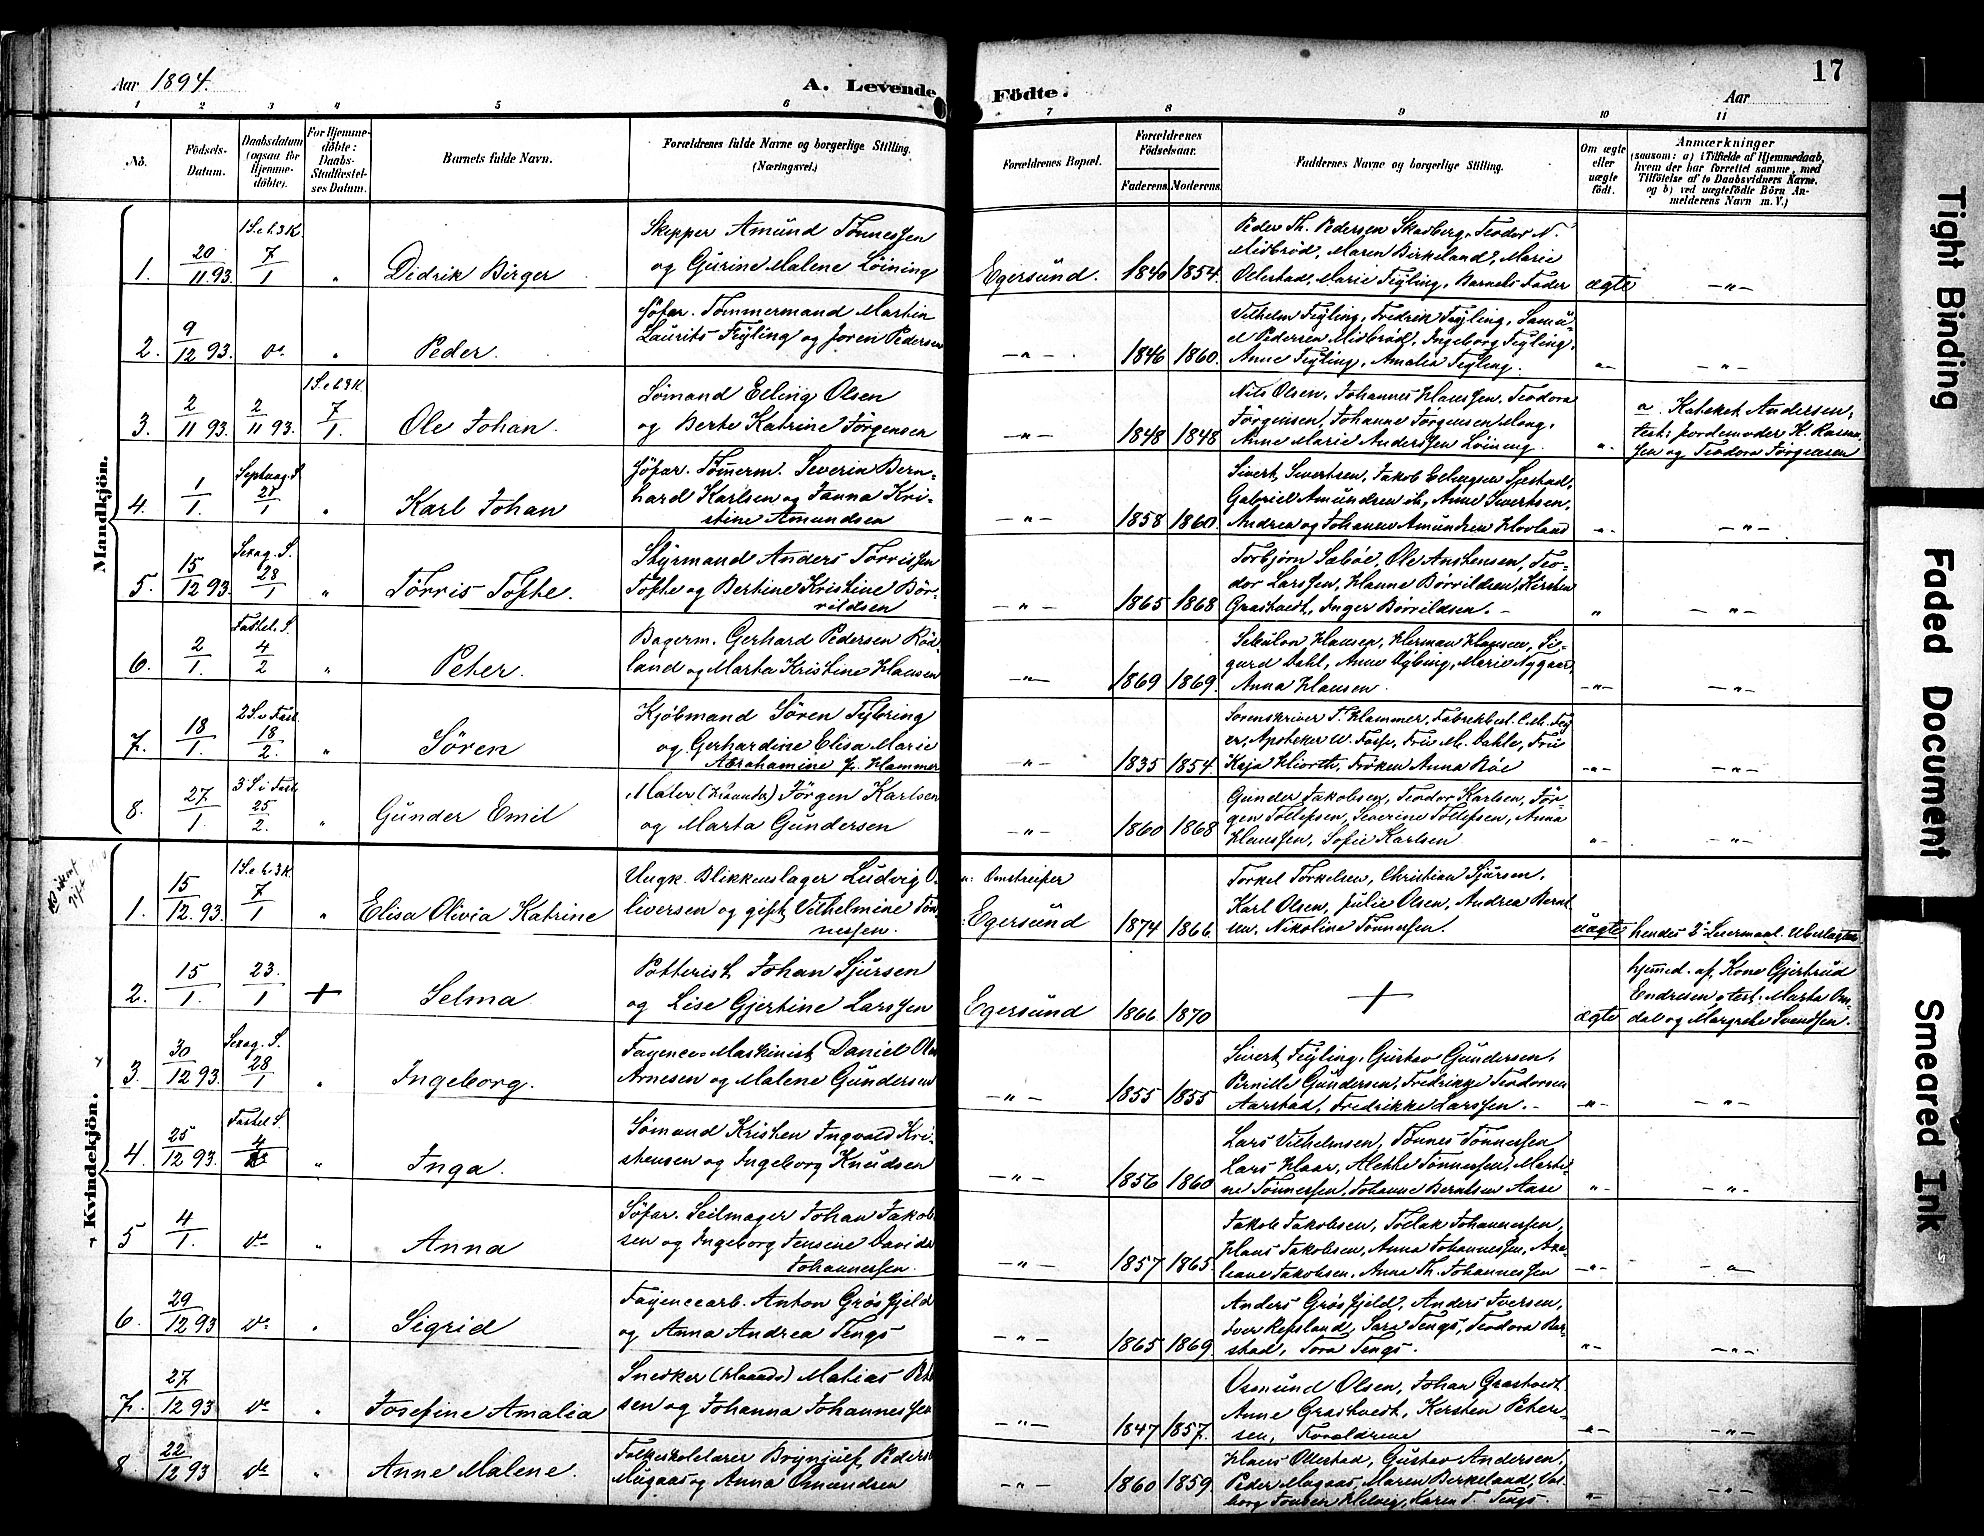 Aar 1894.
A. Levende Födte.
17
Aar
1 2 3 4 5 6 7 8 9 10 11
No.
Födsels-Datum.
Daabsdatum (ogsaa for Hjemme-döbte).
For Hjemme-döbte: Daabs-Stadfæstel-ses Datum.
Barnets fulde Navn.
Forældrenes fulde Navne og borgerlige Stilling. (Næringsvei.)
Forældrenes Bopæl.
Forældrenes Födselsaar.
Faderens. Moderens.
Faddernes Navne og borgerlige Stilling.
Om ægte eller uægte født.
Anmærkninger
(saasom: a) i Tilfælde af Hjemmedaab, hvem der har forrettet samme, med Tilföielse af to Daabsvidners Navne, og b) ved uægtefödte Börn An-melderens Navn m. V.)
Mandkjön.
1. 20/11 93. 1 S. e. h. 3 K. 7/1 " Didrik Birger
Skipper Amund Tønnessen
og Gurine Malene Löining
Egersund. 1846 1854.
Peder Th. Pedersen Skadberg, Teodor N.
Midbrød, Maren Birkeland, Marie
Ollestad, Marie Feyling, Barnets Fader
ægte —"—
2. 9/12 93. do " Peder.
Söfar. Tømmermand Martin
Laurits Feyling og Joren Pedersen
—"— 1846 1860.
Vilhelm Feyling, Fredrik Feyling, Samu-
el Pedersen Midbrød, Ingeborg Feyling,
Anne Feyling, Amalia Feyling.
"— —"—
3. 2/11 93. 2/11 93. 1 S. e. h. 3 K. 7/1. Ole Johan.
Sømand Elling Olsen
og Berte Katrine Jørgensen
—"— 1848 1848
Nils Olsen, Johannes Klaussen, Teodora
Jørgensen, Johanne Jørgensen Mong,
Anne Marie Anderssen Löining.
"-
a. Kateket Andersen,
test: Jordemoder K. Rasmu-
sen og Teodora Jørgensen
4. 1/1. Septuag. S. 21/1 " Karl Johan
Söfar. Tømerm. Severin Bern-
hard Karlsen og Janna Kri-
stine Amundsen
—"— 1858 1860.
Sivert Sivertsen, Jakob Ellingsen Sjestad,
Gabriel Amundsen ib., Anne Sivertsen,
Andrea og Johanne Amundsen Hovland
"- —"—
5. 15/12 93. Sexag. S. 28/1 " Tørris Tofte.
Styrmand Anders Tørrissen
Tofte og Bertine Kristine Bör-
rildsen
—"— 1865 1868
Torbjørn Sæbøe, Ole Anstensen, Teo-
dor Larssen, Hanne Börrildsen, Kirsten
Grastvedt, Inger Börrildsen. -
" —"—
6. 2/1. Fastel. S. 4/2 " Peter.
Bagerm. Gerhard Pedersen Röd-
land og Marta Kristine Klausen
—"— 1869 1869.
Sekulon Hansen, Herman Hansen, Si-
gurd Dahl, Anne Dybing, Marie Nygaar,
Anna Hansen.
-"- —"—
7. 18/1. 2 S. i Fast. 18/2. " Sören
Kjöbmand Sören Fybring
og Gerhardine Elisa Marie
Abrahamine f. Hammer
—"— 1835 1854.
Sorenskriver T. Hammer, Fabrekbest. C. M. Fey-
er, Apotheker W. Fasse, Fru M. Dahle, Fru
Kaja Hiorth, Frøken Anna Böe
-"- —"—
8. 27/1. 3 S. i Fast. 25/2. " Gunder Emil
Maler Jörgen Karlsen
og Marta Gundersen
—"— 1860 1868
Gunder Jakobsen, Teodor Karlsen, Jör-
gen Tollefsen, Severine Tollefsen, Anna
Klaussen, Sofie Karlsen
"- —"—
Kvindekjön.
1. 15/12 93. 1 S. e. h. 3 K 7/1 " Elisa Olivia Katrine
Ungk. Blikkenslager Ludvig O-
liversen og gift Vilhelmine Tön-
nessen.
Omstreifer
Egersund 1874 1866.
Torkel Torkelsen, Christian Sjursen,
Karl Olsen, Julie Olsen, Andrea Bernt-
sen, Nikoline Tønnessen.
uægte hendes 2det Leiermaal.
2. 15/1. 23./1 + Selma.
Potterist Johan Sjursen
og Lise Gjertine Larssen
Egersund 1866. 1870 +
ægte
hjemmed. af Kone Gjertrud
Endresen, test. Marta Om-
dal og Margrete Svendsen.
3. 30/12 93. Sexag. S. 28/1 " Ingeborg.
Fayence Maskinist Daniel Olai
Arnesen og Malene Gundersen
—"— 1855 1855
Sivert Feyling, Gustav Gundersen,
Pernille Gundersen, Fredrikke Teodorsen
Aarstad, Fredrikke Larssen. -
-"- —"—
4. 25/12 93. Fastel S. 4/2 " Inga.
Sömand Kristen Ingvald Kri-
stensen og Ingeborg Knudsen
—"— 1856 1860
Lars Vilhelmsen, Tønnes Tønnessen
Lars Haar, Alethe Tønnessen, Marti-
ne Tønnessen, Johanne Berntsen Aase
"- -"-
5 4/1. do " Anna
Söfar. Seilmager Johan Jakob-
sen og Ingeborg Jensine Davida
Johannessen.
—"— 1857 1865.
Jakob Jakobsen, Torlak Johannessen,
Hans Jakobsen, Anna Johannessen, Axe-
liane Jakobsen, Anna Th. Johannessen
-"- —"—
6. 29/12 93 do " Sigrid
Fayencearb. Anton Grösfjeld
og Anna Andrea Tengs
—"— 1865 1869.
Anders Grösfjeld, Anders Iversen,
Iver Refsland, Sara Tengs, Teodora Bar-
stad, Tora Tengs.
"- —"—
7. 27/12 93 do " Josefine Amalia
Snedker Matias Peter-
sen og Johanna Johannessen
—"— 1847 1857.
Osmund Olsen, Johan Grastvedt
Anne Grastvedt, Kersten Peter-
sen, Forældrene
-"- —"—
8 22/12 93 do " Anne Malene.
Folkeskolelærer Brynjulf Peders.
Mugaas og Anna Omundsen
—"— 1860 1859.
Hans Ollestad, Gustav Andersen,
Peder Mugaas, Maren Birkeland, Val-
borg Tonsen Helvig, Karen T. Tengs.
"- —"—
Tight Binding
Faded Document
Smeared Ink